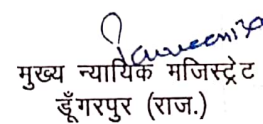 मुख्य न्यायिक मजिस्ट्रेट
डूँगरपुर (राज.)